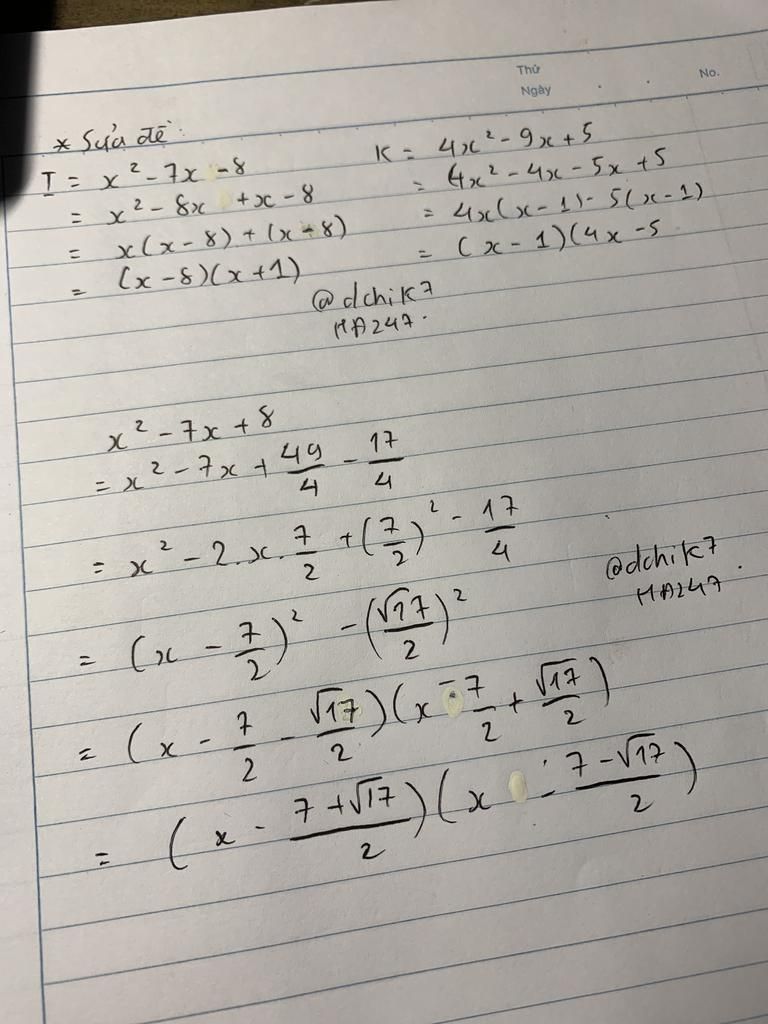 Thứ
Ngày
No.
* Sửa đề:
I = x² - 7x - 8
= x² - 8x + x - 8
= x(x - 8) + (x - 8)
= (x - 8)(x + 1)
K = 4x² - 9x + 5
= 4x² - 4x - 5x + 5
= 4x(x - 1) - 5(x - 1)
= (x - 1)(4x - 5
@dchik7
HA247.
x² - 7x + 8
= x² - 7x + 49/4 - 17/4
= x² - 2.x.7/2 + (7/2)² - 17/4
@dchik7
HA247.
= (x - 7/2)² - (√17/2)²
= (x - 7/2 - √17/2)(x - 7/2 + √17/2)
= (x - (7 + √17)/2)(x - (7 - √17)/2)